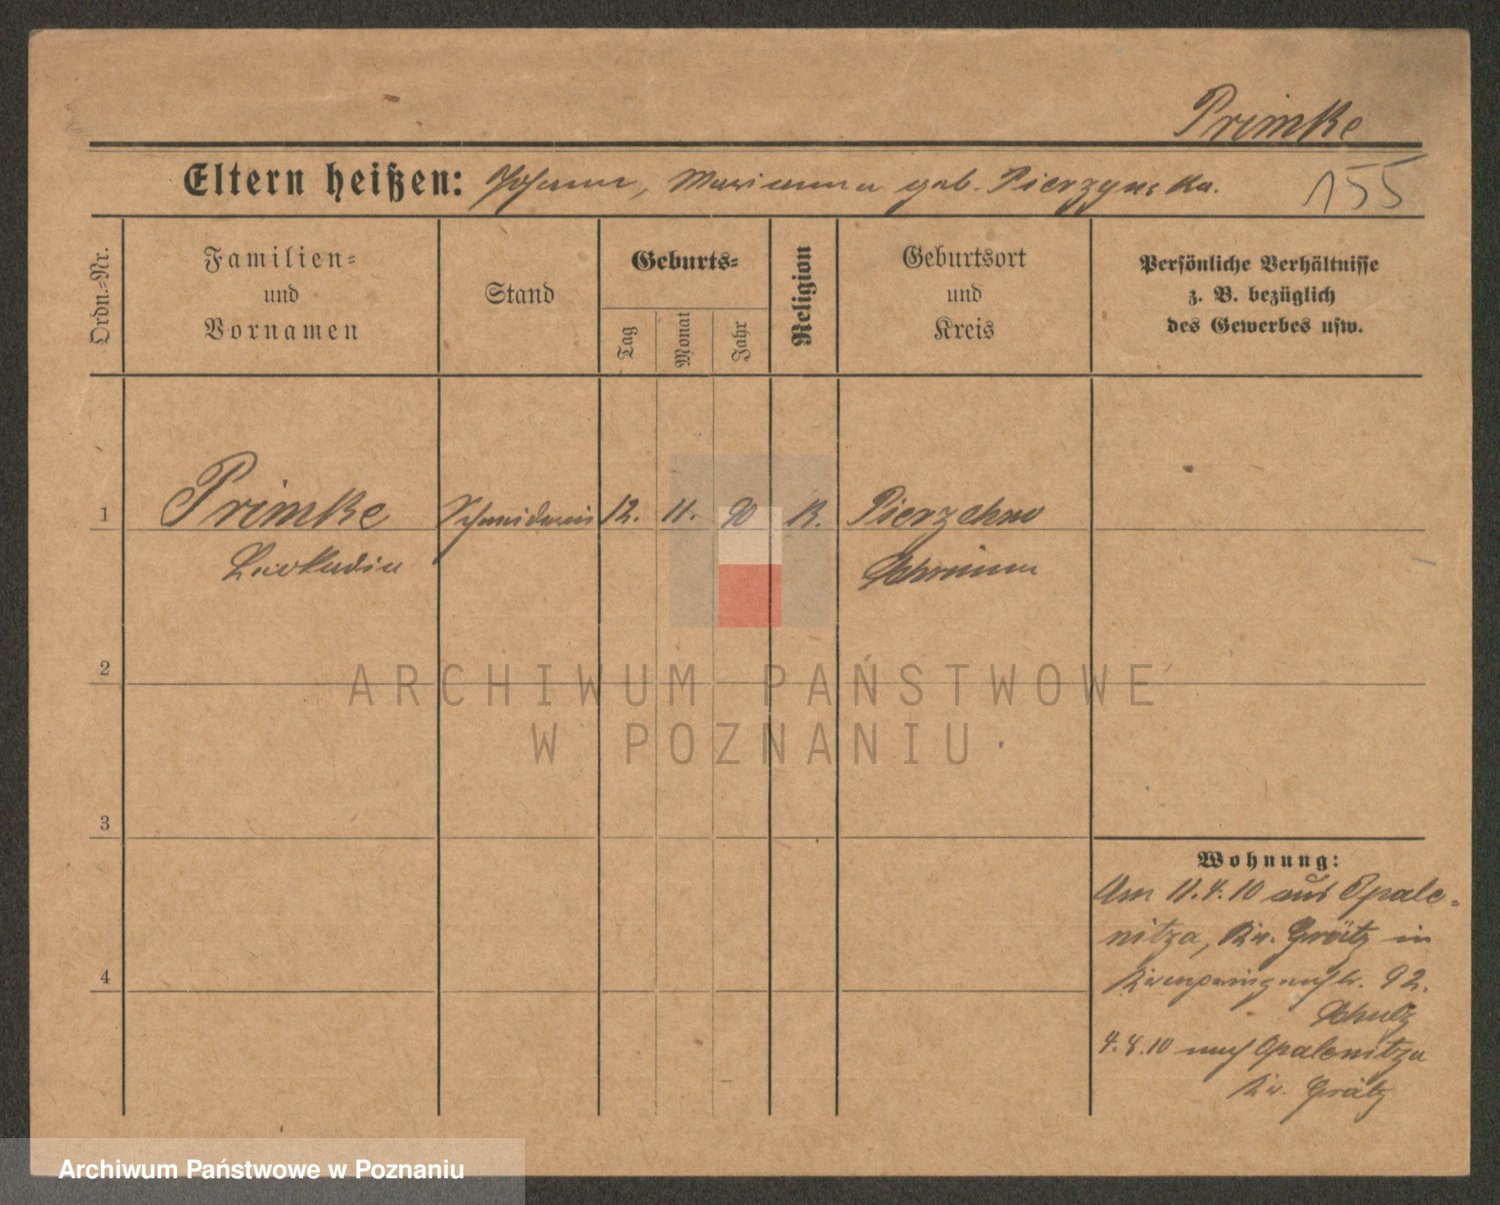 Primke
Eltern heißen: Johann, Marianna geb. Pierzynska.
155
Ordn.=Nr.
Familien=
und
Vornamen
Stand
Geburts=
Tag
Monat
Jahr
Religion
Geburtsort
und
Kreis
Persönliche Verhältnisse
z. B. bezüglich
des Gewerbes usw.
1 Primke Schneiderin 12. 11. 90 K. Pierzchno
Leokadia Schrimm
2
ARCHIWUM PAŃSTWOWE
W POZNANIU
3
Wohnung:
Am 11.4.10 aus Opale-
nitza, Kr. Grätz in
Kronprinzenstr. 92.
4
Schulz
4.8.10 nach Opalenitza
Kr. Grätz
Archiwum Państwowe w Poznaniu